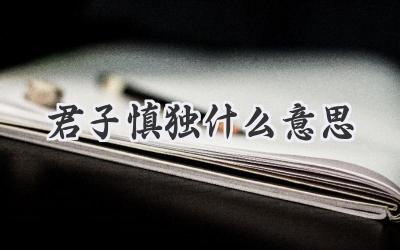 君子慎独什么意思